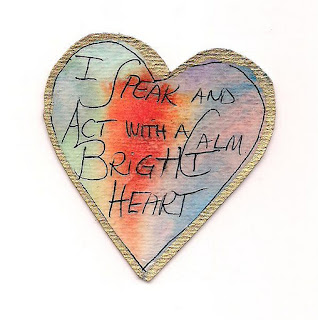 I SPEAK AND
ACT WITH A CALM
BRIGHT
HEART